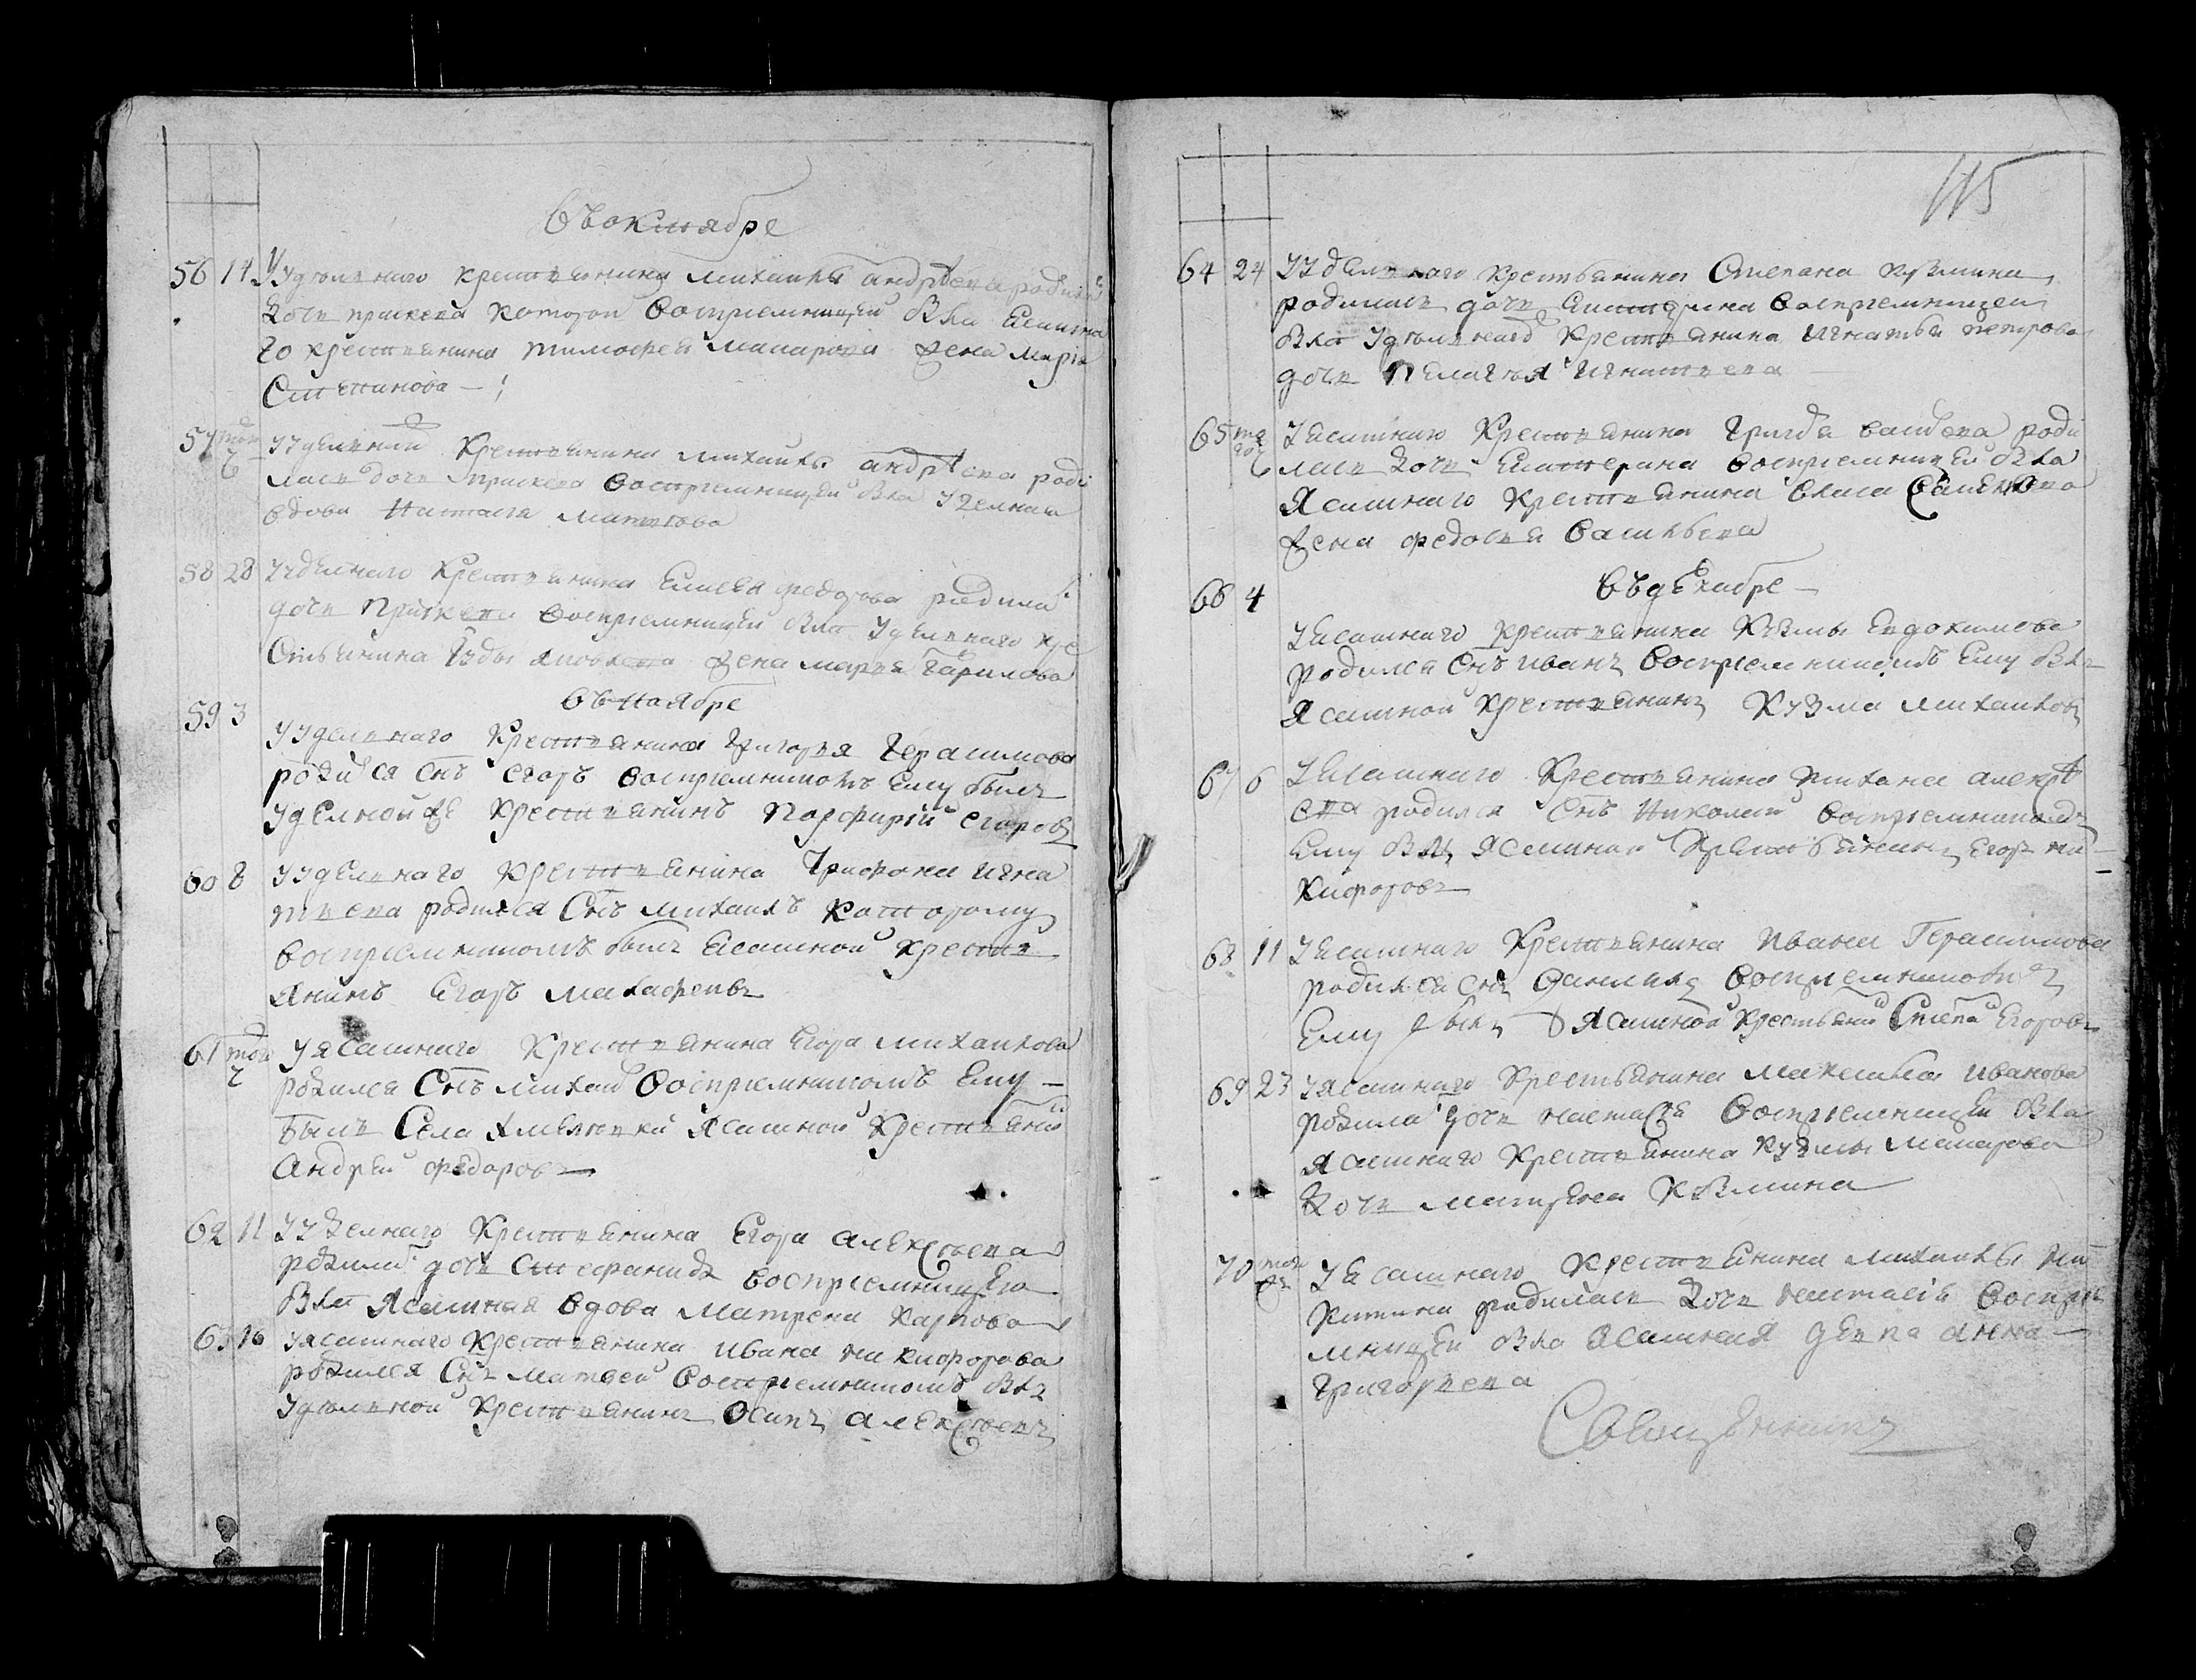 въ октябре
56 14 У удѣльнаго крестьянина михаилы андрѣева родилас
дочь праскева которой восприемницей была ясашна
го крестьянина тимофея макарова жена марья
Степанова
57 того 6 У уделний крестьянина михаилы андрѣева роди
лась дочь праскева восприемницей была уделная
вдова Наталя
58 28 У уделнаго крестьянина Елисея федорова родилас
дочь праскева восприемницей была уделнаго кре
стьянина яковлева жена марья Гаврилова
въ ноябре
59 3
У уделнаго крестьянина Григорья Герасимова
родился снъ егоръ восприемникомъ ему былъ
уделной же крестьянинъ Порфирий егоровъ
60 8 У уделнаго крестьянина Трифона игна
тьева родился снъ михаилъ которому
восприемникомъ былъ ясашной кресть
янинъ Егоръ малафеевъ
61 того У ясашнаго крестьянина Егора михаилова
родился Снъ михаил восприемникомъ Ему
былъ Села ясашной крестьянин
Андрей федоровъ
62 11 У уделнаго крестьянина Егора алексѣева
родилас дочь стефанида восприемницею
была ясашная вдова матрена карпова
63 16 У ясашнаго крестьянина ивана никифорова
родился Снъ матвей восприемникомъ былъ
удѣльной крестьянинъ Осипъ алексѣевъ
115
64 24 У уделнаго крестьянина Степана кузмина
родилась дочь екатерина восприемницей
была удѣльнаго крестьянина игнатья петрова
дочь Пелагея игнатьева
65 того У ясашнаго крестьянина роди
лась дочь екатерина восприемницей была
ясашнаго крестьянина власа Семенова
жена федосья васильева
въ декабре
66 4
У ясашнаго крестьянина кузмы евдокимова
родился снъ иванъ восприемникомъ ему былъ
ясашной крестьянинъ кузма михаиловъ
67 6 У ясашнаго крестьянина алексѣ
ева родился снъ николай восприемникомъ
ему былъ ясашной крестьянинъ егоръ ни
кифоровъ
68 11 У ясашнаго крестьянина ивана Герасимова
родился снъ данилъ восприемникомъ
ему былъ ясашной крестьянин Степа Егоровъ
69 23 У ясашнаго крестьянина ивановa
родилас дочь настасе восприемницей была
ясашнаго крестьянина кузмы макарова
дочь матрена кузмина
70 того У ясашнаго крестьянина михаилы ни
китина родилась дочь настасія восприе
мницей была ясашная девка анна
Григорьева